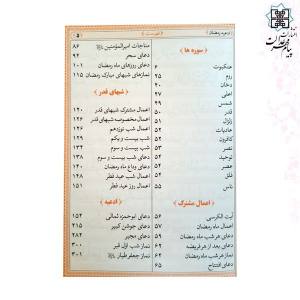 ادعیه رمضان
فهرست
۵
سوره ها
عنکبوت ۶
روم ۱۵
دخان ۲۰
اعلی ۲۷
شمس ۲۹
قدر ۴۰
زلزال ۵۱
عادیات ۵۲
تکاثر ۵۲
عصر ۵۳
نصر ۵۳
توحید ۵۴
فلق ۵۴
ناس ۵۵
اعمال مشترک
آیت الکرسی ۵۶
اعمال ماه رمضان ۵۷
دعای هر شب ماه رمضان ۵۷
دعای بعد از هر فریضه ۶۲
نماز هر شب ماه رمضان ۶۵
دعای افتتاح ۶۵
مناجات امیرالمؤمنین ۸۶
دعای سحر ۹۲
دعای روزهای ماه رمضان ۱۰۱
نمازهای شبهای مبارک رمضان ۱۱۵
شبهای قدر
اعمال مشترک شبهای قدر ۱۲۰
اعمال مخصوصه شبهای قدر ۱۲۶
شب نوزدهم ۱۲۶
شب بیست و یکم ۱۲۹
شب بیست و سوم ۱۳۲
دعای شب بیست و سوم ۱۳۸
دعای وداع ماه رمضان ۱۴۰
اعمال شب عید فطر ۱۴۸
اعمال روز عید فطر ۱۵۱
ادعیه
دعای ابوحمزه ثمالی ۱۵۲
دعای جوشن کبیر ۲۱۵
دعای مجیر ۲۸۲
نماز شب اول قبر ۳۰۱
نماز جعفر طیار ۳۰۱